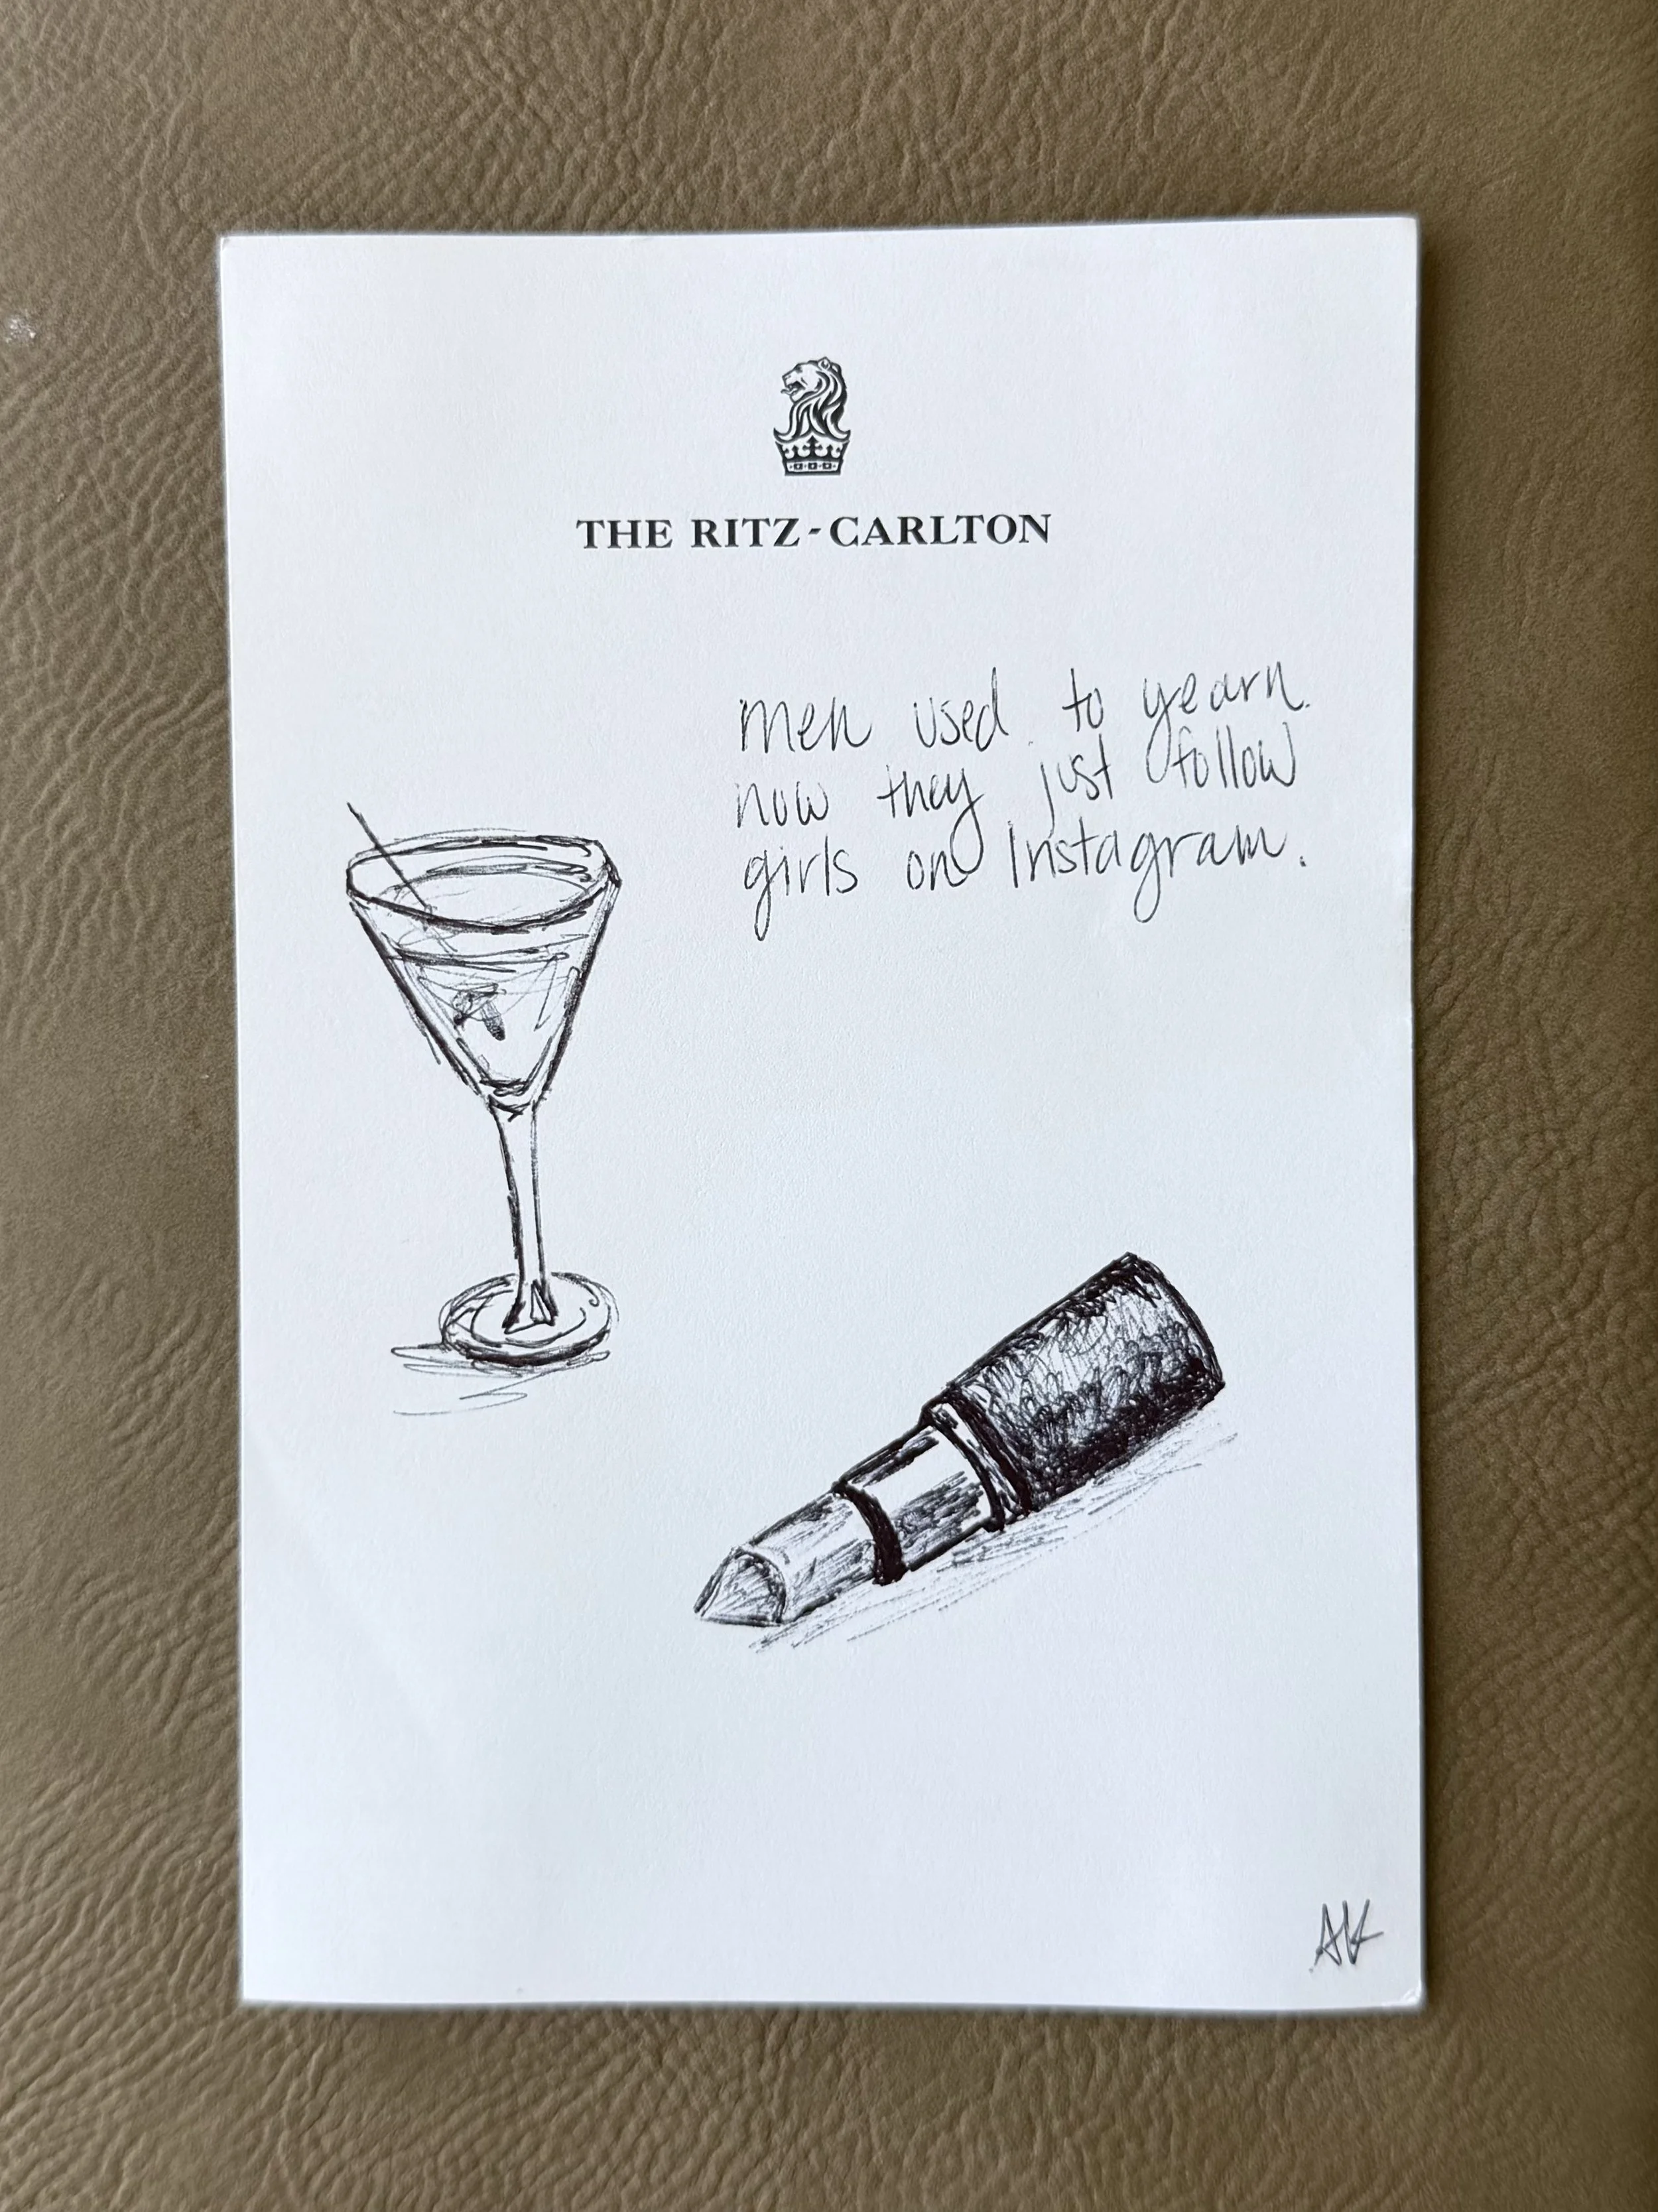 THE RITZ-CARLTON
men used to yearn.
now they just follow
girls on Instagram.
AK